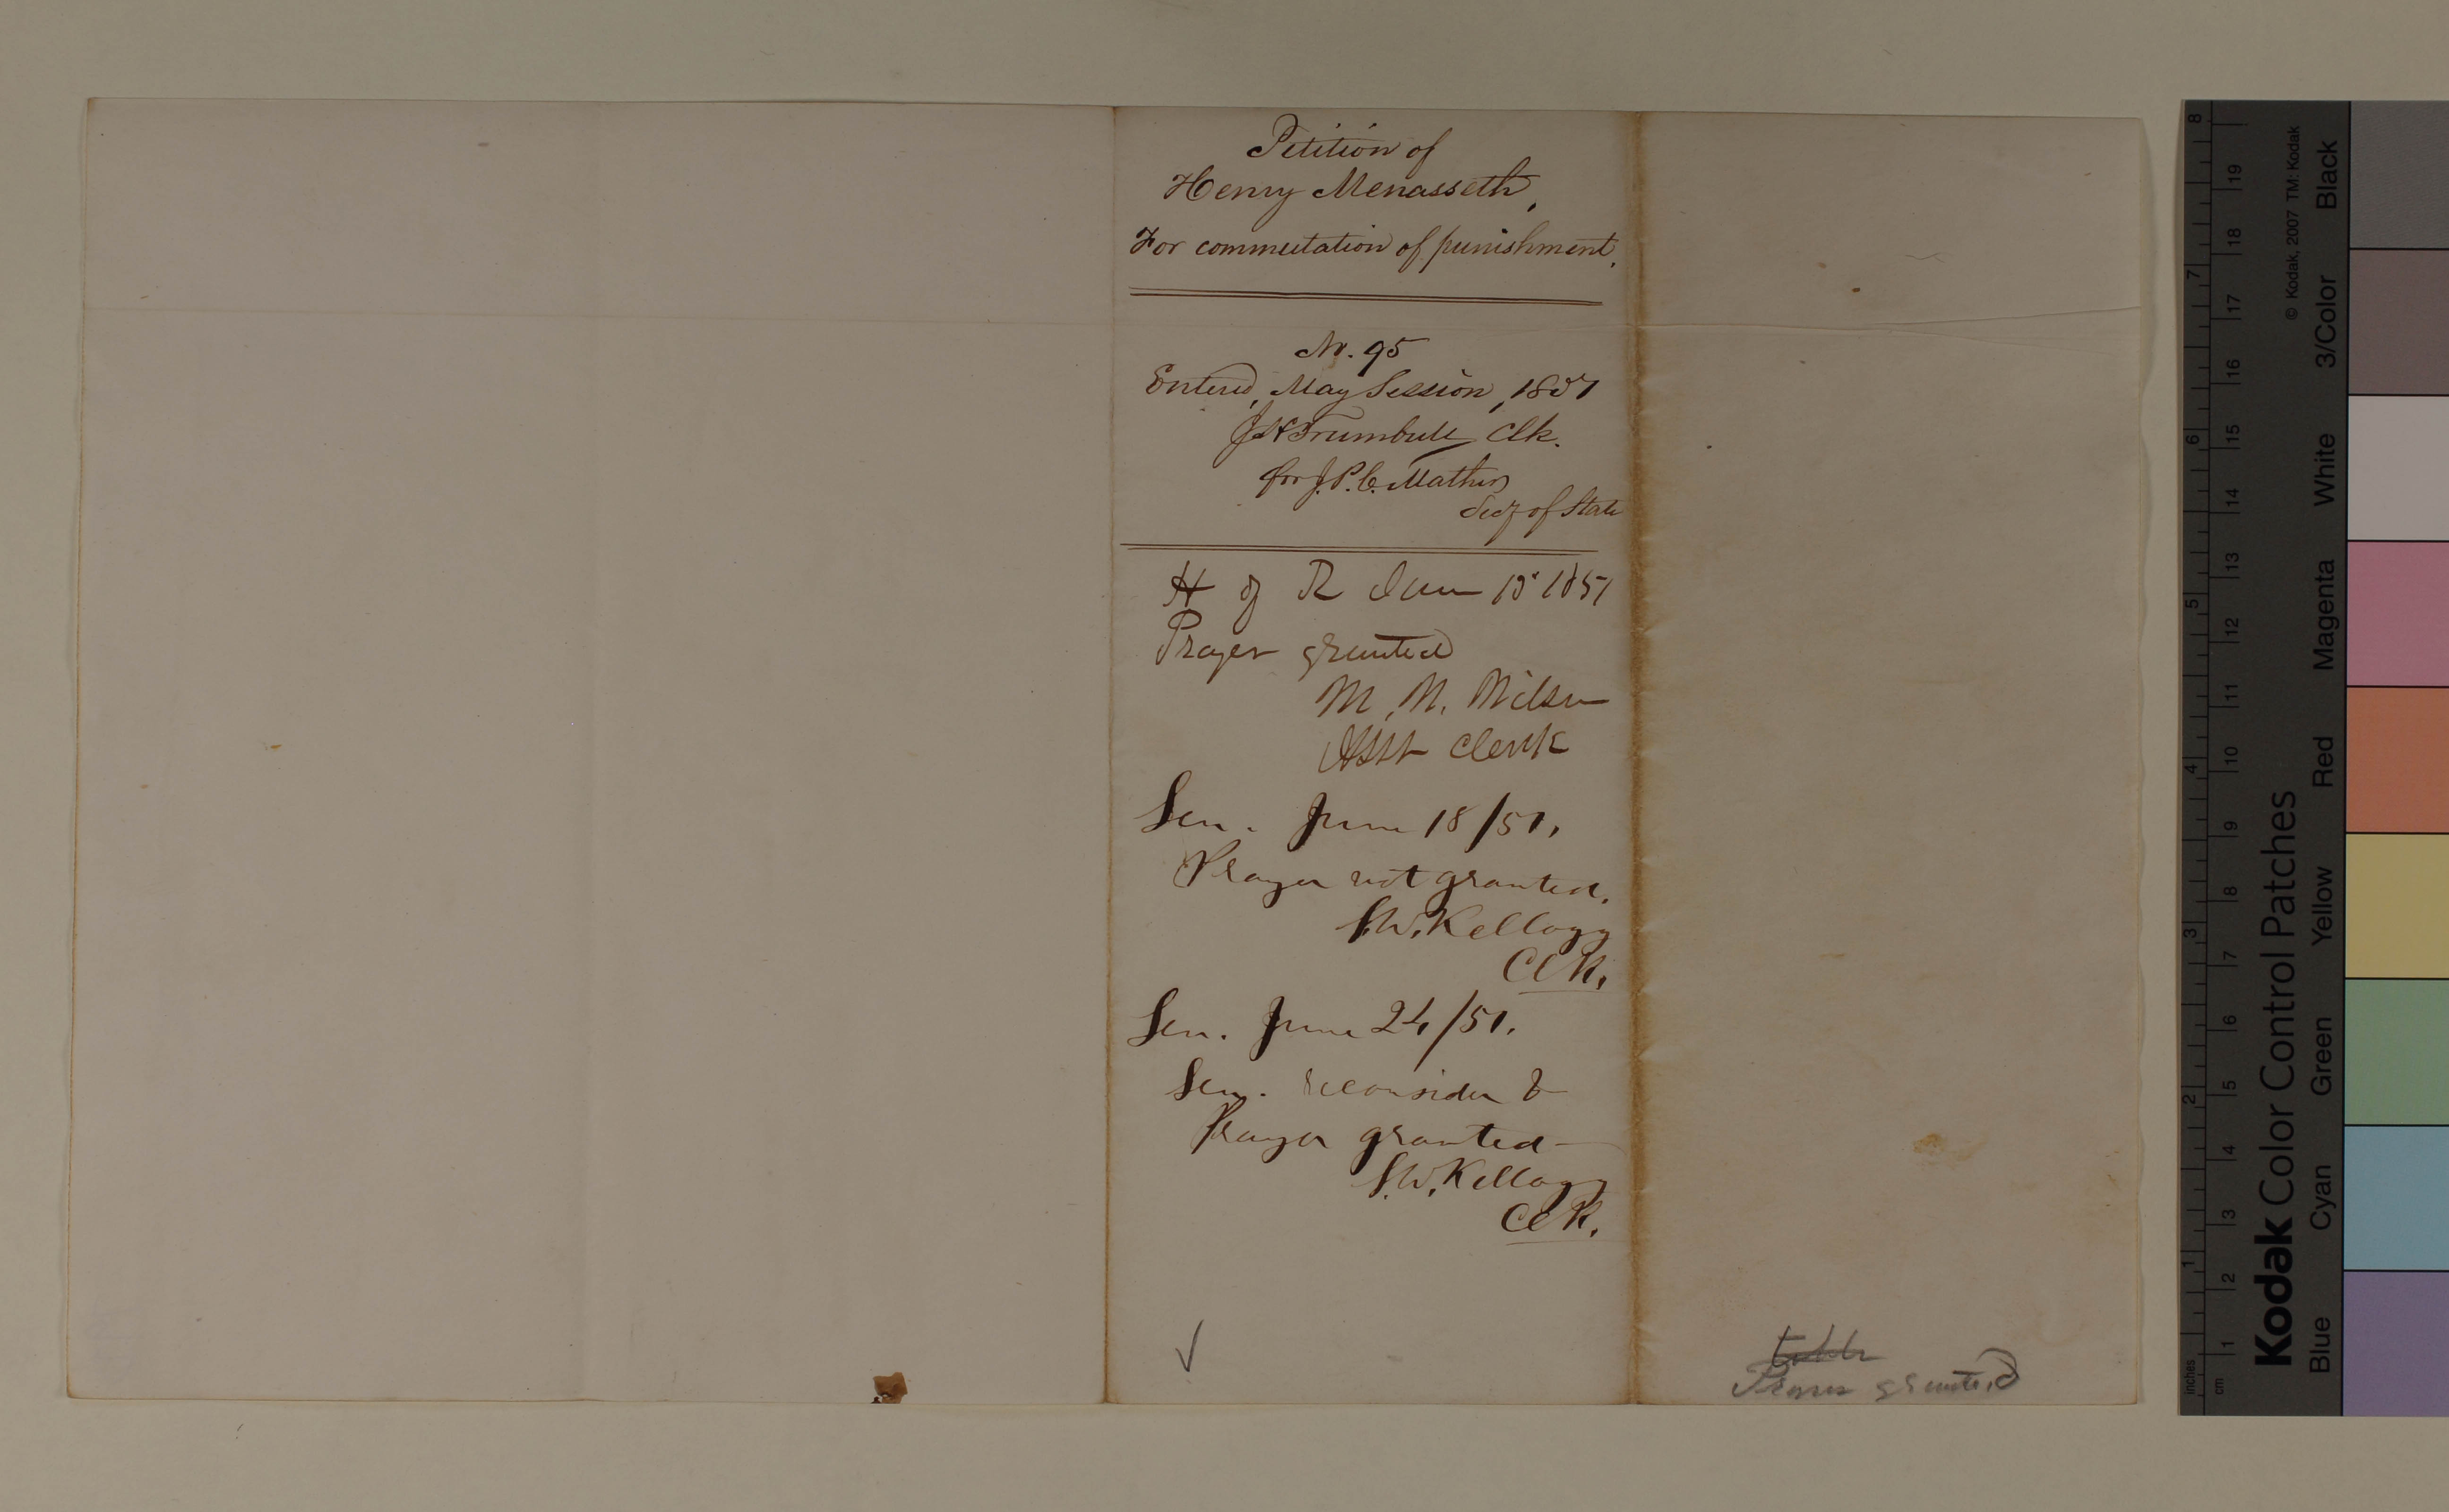 Petition of
Henry Menasseth,
For commutation of punishment.
No. 95
Entered, May Session, 1851
J H Trumbull Clk.
for J. P. C. Mather
Secy of State
H of R June 18 1851
Prayer granted
M. N. Wilson
Asst Clerk
Sen. June 18/51.
Prayer not granted.
S. W. Kellogg
Clk.
Sen. June 24/51.
Sen. reconsider &
Prayer granted
S. W. Kellogg
Clk.
Prayer granted
Kodak Color Control Patches
© Kodak, 2007 TM: Kodak
Blue Cyan Green Yellow Red Magenta White 3/Color Black
inches 1 2 3 4 5 6 7 8
cm 1 2 3 4 5 6 7 8 9 10 11 12 13 14 15 16 17 18 19